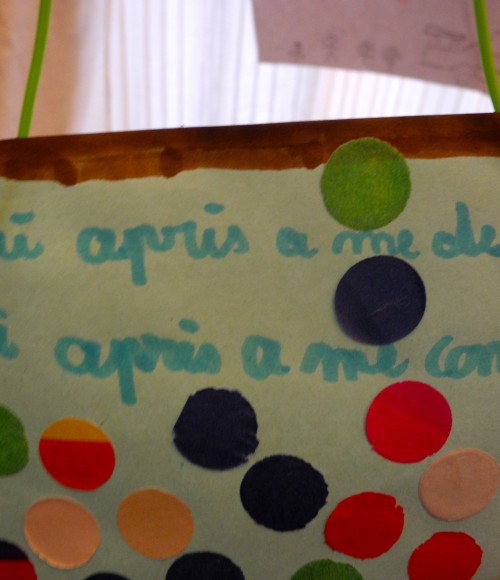 ai après a me de
i après a me con